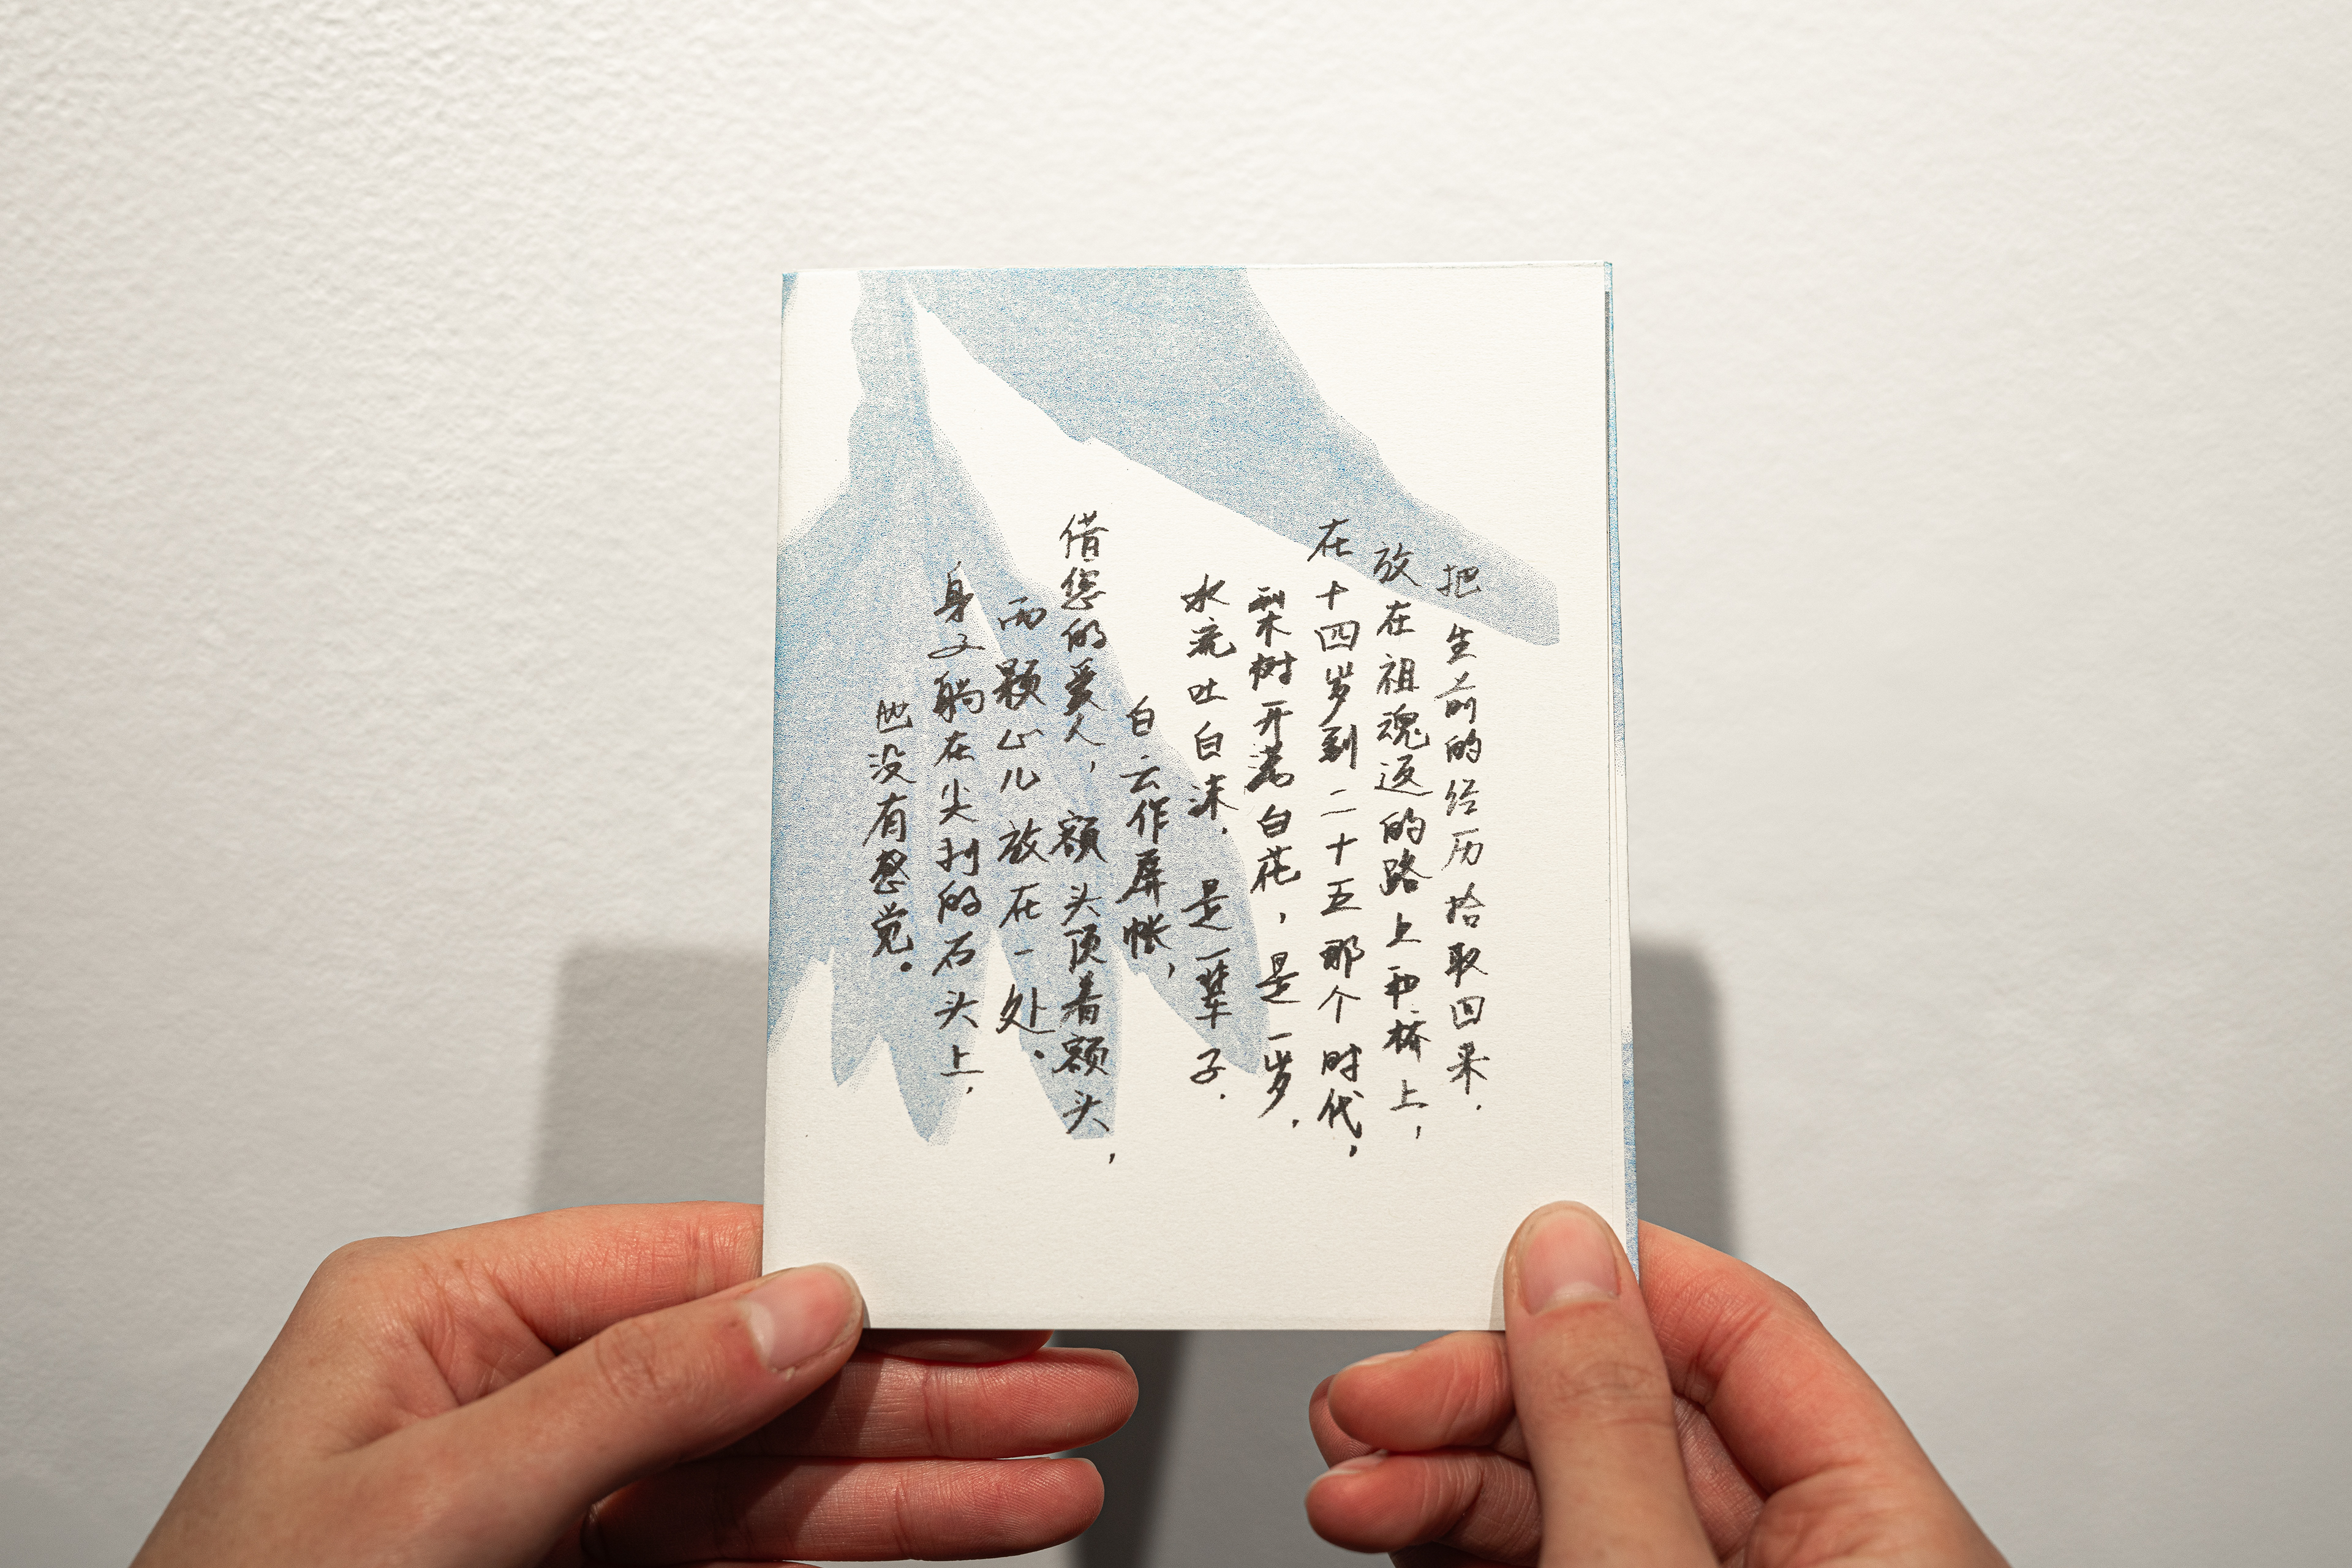 把生前的经历拾取回来，
放在祖魂返的路上和桥上，
在十四岁到二十五那个时代，
梨树开满白花，是一岁，
水流吐白沫，是一辈子，
白云作屏帐，
借您的爱人，额头顶着额头，
两颗心儿放在一处。
身子躺在尖利的石头上，
也没有感觉。